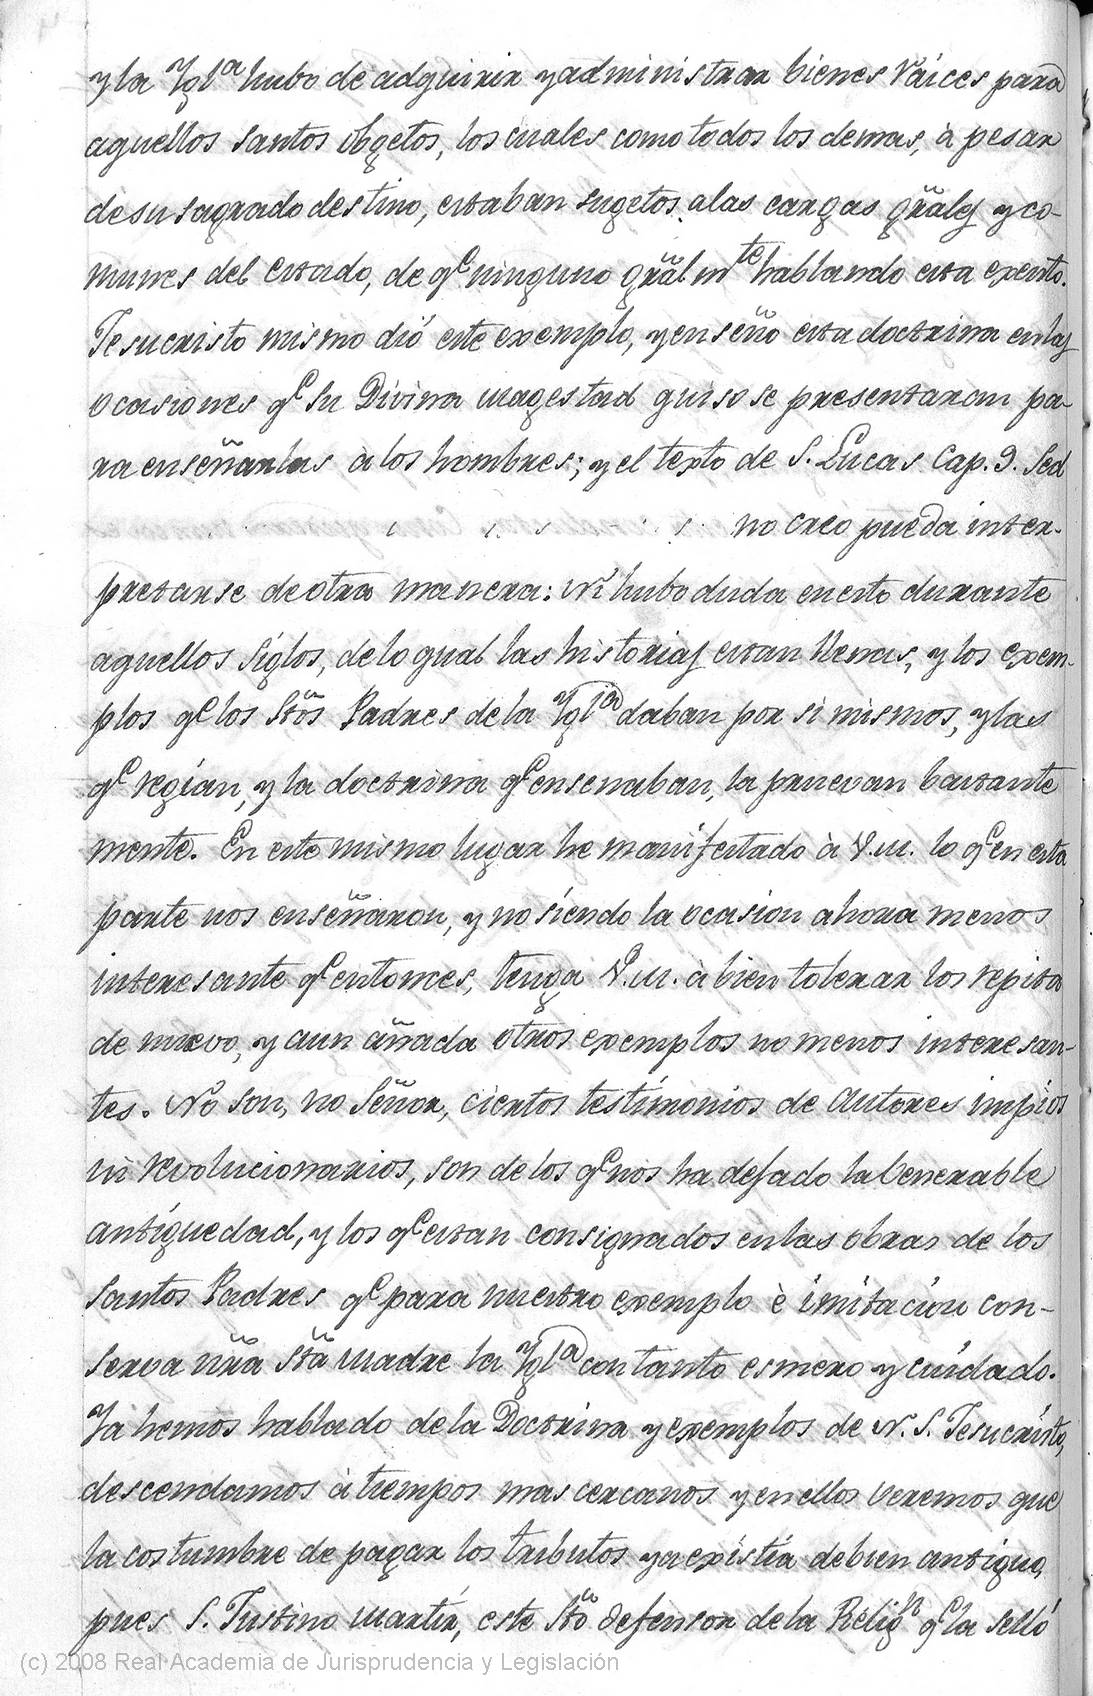 y la Ygl.ª hubo de adquirir y administrar bienes raices para
aquellos santos obgetos, los cuales como todos los demas, à pesar
de su sagrado destino, estaban sugetos a las cargas grãles y co-
munes del estado, de q.e ninguno grãlm.te hablando esta exento.
Jesucristo mismo dió este exemplo, y enseño esta doctrina en las
ocasiones q.e su Divina magestad quiso se presentaran pa-
ra enseñarlas à los hombres; y el texto de S. Lucas Cap. 9. Sed
no creo pueda inter-
pretarse de otra manera: Ni hubo duda en esto durante
aquellos siglos, de lo qual las historias estan llenas, y los exem-
plos q.e los Stõs Padres de la Ygl.ª daban por si mismos, y las
q.e regían, y la doctrina q.e ensenaban, la pruevan bastante
mente. En este mismo lugar he manifestado à V.M. lo q.e en esta
parte nos enseñaron, y no siendo la ocasion ahora menos
interesante q.e entonces, tenga V.M. à bien tolerar los repita
de nuevo, y aun añada otros exemplos no menos interesan-
tes. No son, no Señor, ciertos testimonios de Autores impios
ni revolucionarios, son de los q.e nos ha dejado la benerable
antigüedad, y los q.e estan consignados en las obras de los
Santos Padres q.e para nuestro exemplo è imitacion con-
serva nrã Stã Madre la Ygl.ª con tanto esmero y cuidado.
Ya hemos hablado de la Doctrina y exemplos de N. S. Jesucristo,
descendamos à tiempos mas cercanos y en ellos veremos que
la costumbre de pagar los tributos ya existia de bien antiguo,
pues S. Justino Martir, este Stõ defensor de la Relig.n q.e la selló
(c) 2008 Real Academia de Jurisprudencia y Legislación